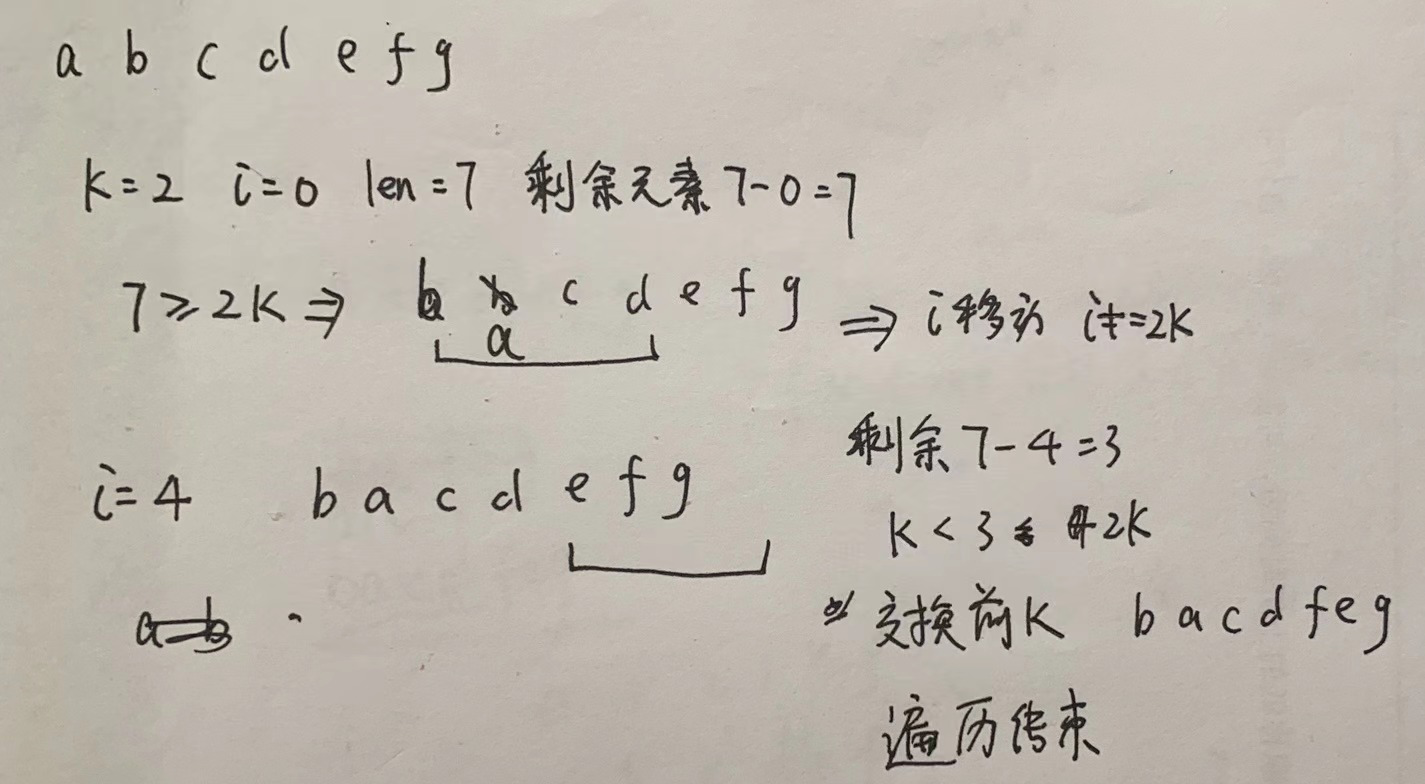 a b c d e f g
k=2 i=0 len=7 剩余元素 7-0=7
7≥2K⇒ b a c d e f g ⇒ i移动 i+=2K
剩余 7-4=3
i=4 b a c d e f g
K<3<2K
交换前K b a c d f e g
遍历结束